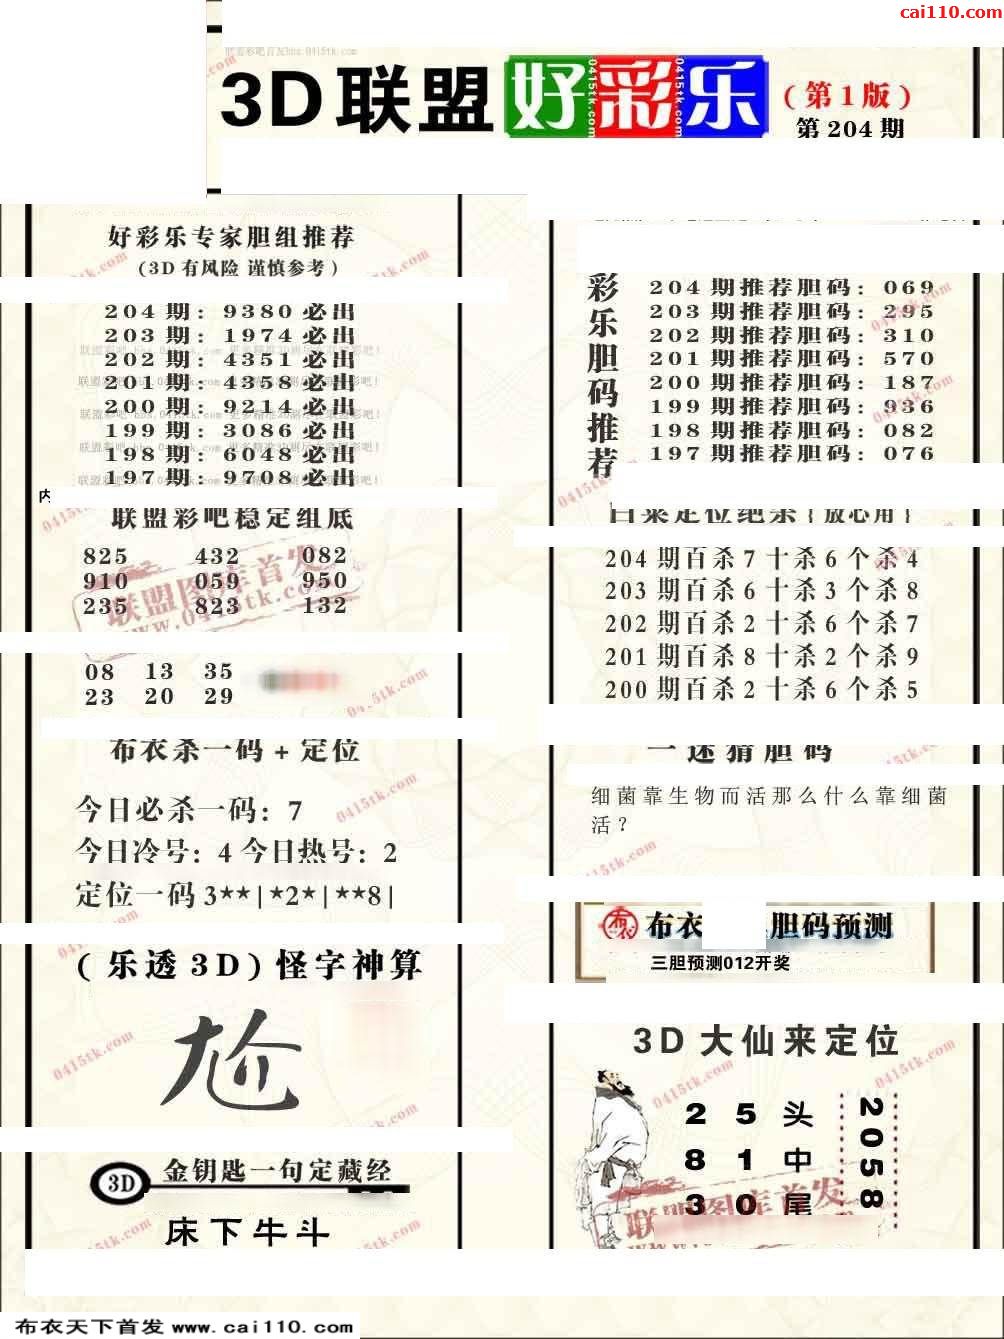 cai110.com
3D联盟 好彩乐 (第1版)
第204期
好彩乐专家胆组推荐
(3D有风险 谨慎参考)
204期: 9380必出
203期: 1974必出
202期: 4351必出
201期: 4358必出
200期: 9214必出
199期: 3086必出
198期: 6048必出
197期: 9708必出
联盟彩吧稳定组底
825 432 082
910 059 950
235 823 132
联盟图库首发
www.0415tk.com
08 13 35
23 20 29
布衣杀一码+定位
今日必杀一码: 7
今日冷号: 4 今日热号: 2
定位一码 3**|*2*|**8|
(乐透3D)怪字神算
尬
3D 金钥匙一句定藏经
床下牛斗
彩乐胆码推荐
204期推荐胆码: 069
203期推荐胆码: 295
202期推荐胆码: 310
201期推荐胆码: 570
200期推荐胆码: 187
199期推荐胆码: 936
198期推荐胆码: 082
197期推荐胆码: 076
204期百杀7十杀6个杀4
203期百杀6十杀3个杀8
202期百杀2十杀6个杀7
201期百杀8十杀2个杀9
200期百杀2十杀6个杀5
一迷猜胆码
细菌靠生物而活那么什么靠细菌
活?
布衣 胆码预测
三胆预测012开奖
3D大仙来定位
2 5 头
8 1 中
3 0 尾
2058
联盟图库首发
布衣天下首发 www.cai110.com